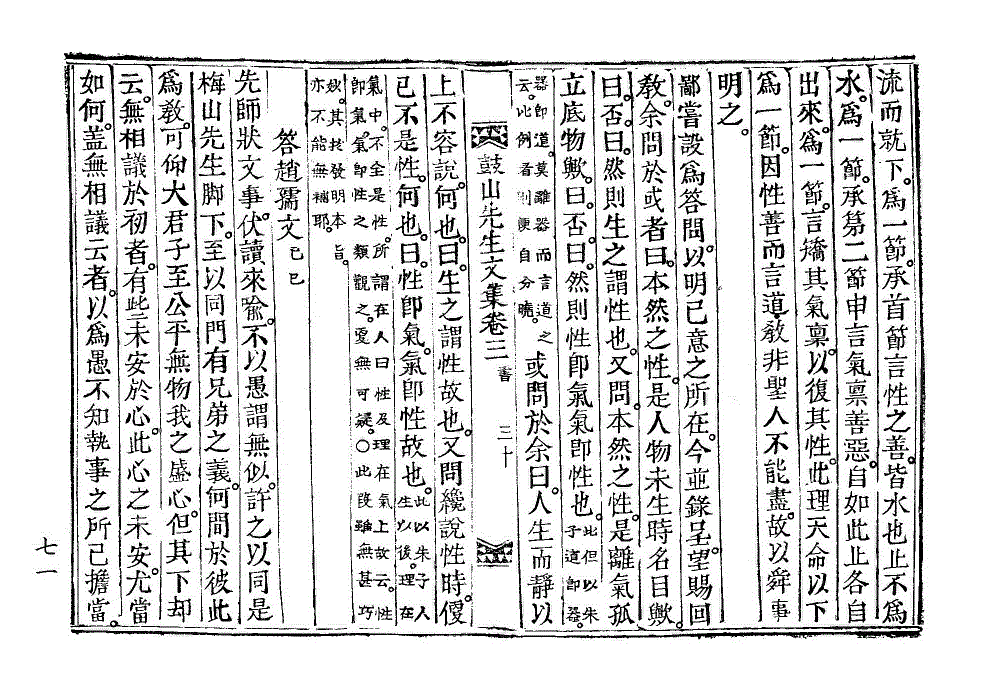 流而就下。爲一節。承首節言性之善。皆水也止不爲
水。爲一節。承第二節申言氣禀善惡。自如此止各自
出來。爲一節。言矯其氣禀。以復其性。此理天命以下
爲一節。因性善而言道敎非聖人不能盡。故以舜事
明之。
鄙嘗設爲答問。以明己意之所在。今並錄呈。望賜回
敎。余問於或者曰。本然之性。是人物未生時名目歟。
曰。否。曰。然則生之謂性也。又問。本然之性。是離氣孤
立底物歟。曰。否。曰。然則性卽氣氣卽性也。此但以朱子道卽器。
器卽道。莫離器而言道之云。此例看則便自分曉。或問於余曰。人生而靜以
鼓山先生文集卷三 書 三十
上不容說。何也。曰。生之謂性故也。又問纔說性時。便
已不是性。何也。曰。性卽氣。氣卽性故也。此以朱子人生以後。理在
氣中。不全是性。所謂在人曰性及理在氣上故云。性卽氣。氣卽性之類觀之。更無可疑。○此段雖無甚巧
妙。其於發明本旨。亦不能無補耶。
答趙孺文 己巳
先師狀文事。伏讀來喩。不以愚謂無似。許之以同是
梅山先生脚下。至以同門有兄弟之義。何間於彼此
爲敎。可仰大君子至公平無物我之盛心。但其下却
云。無相議於初者。有些未安於心。此心之未安。尤當
如何。盖無相議云者。以爲愚不知執事之所已擔當。
七一